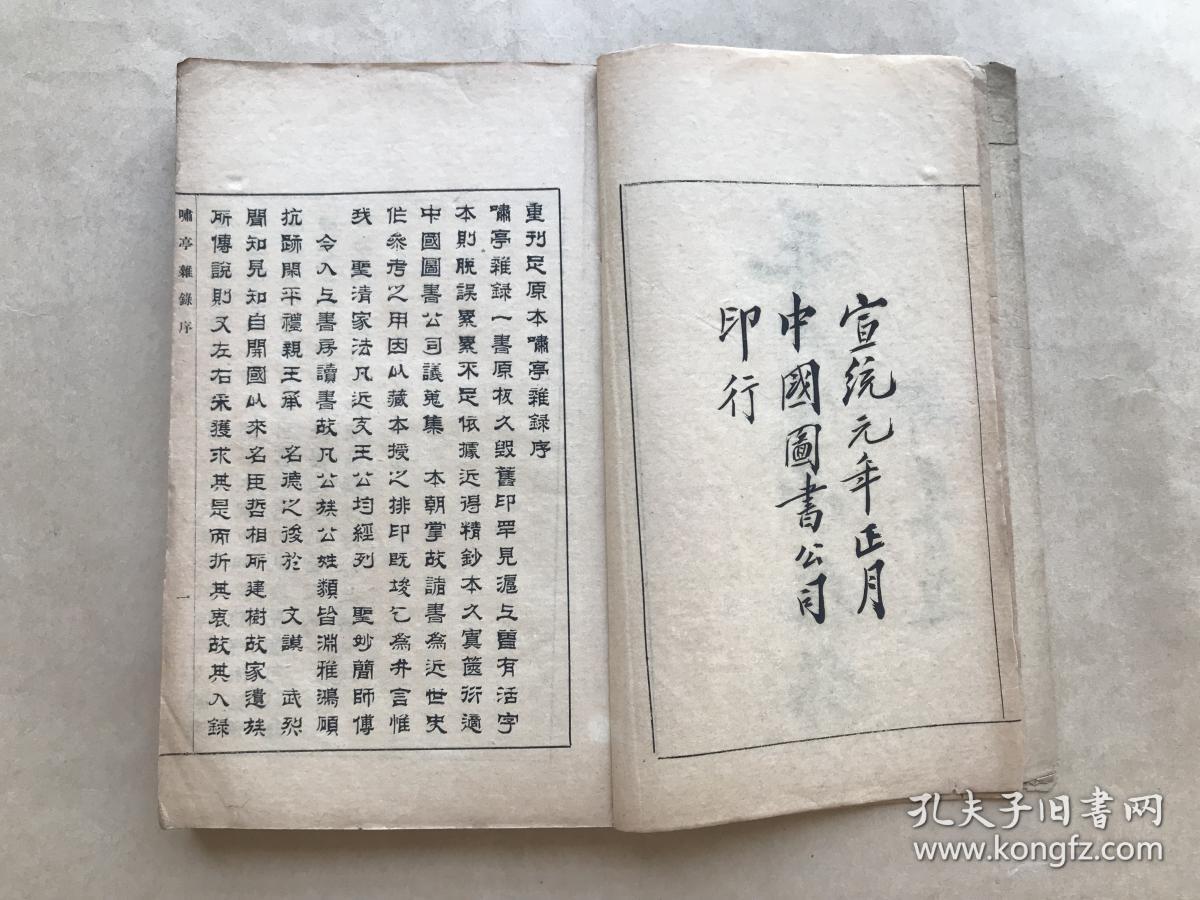 宣統元年正月
中國圖書公司
印行
重刊足原本嘯亭雜錄序
嘯亭雜錄一書原板久毀舊印罕見滬上舊有活字
本則脫誤累累不足依據近得精鈔本久寘篋衍適
中國圖書公司議蒐集 本朝掌故諸書為近世史
作參考之用因以藏本授之排印既竣乞為弁言惟
我 聖清家法凡近支王公均經列 聖妙簡師傅
令入上書房讀書故凡公族公姓類皆淵雅鴻碩
抗跡閒平禮親王承 名德之後於 文謨 武烈
聞知見知自開國以來名臣哲相所建樹故家遺族
所傳說則又左右采獲求其是而折其衷故其入錄
嘯亭雜錄序
一
孔夫子旧书网
www.kongfz.com